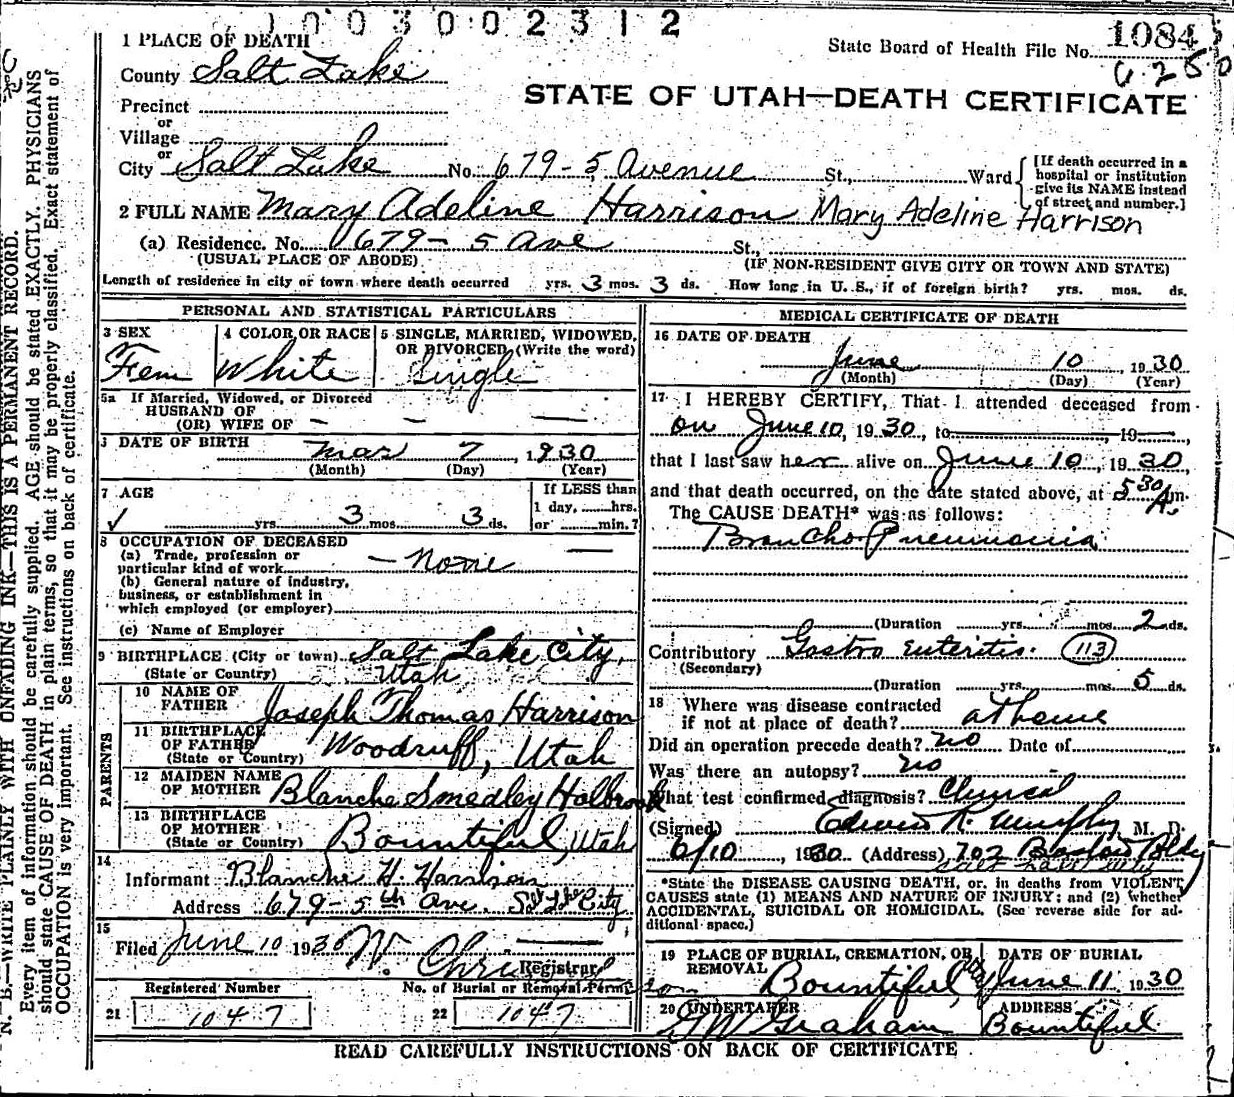 1003002312
1 PLACE OF DEATH
State Board of Health File No. 1084
6250
County Salt Lake
STATE OF UTAH—DEATH CERTIFICATE
Precinct
or
Village
or
City Salt Lake No. 679-5 Avenue St., Ward
[If death occurred in a
hospital or institution
give its NAME instead
of street and number.]
2 FULL NAME Mary Adeline Harrison Mary Adeline Harrison
(a) Residence. No. 679-5 Ave St.,
(USUAL PLACE OF ABODE) (IF NON-RESIDENT GIVE CITY OR TOWN AND STATE)
Length of residence in city or town where death occurred yrs. 3 mos. 3 ds. How long in U. S., if of foreign birth? yrs. mos. ds.
PERSONAL AND STATISTICAL PARTICULARS
3 SEX 4 COLOR OR RACE 5 SINGLE, MARRIED, WIDOWED,
OR DIVORCED (Write the word)
Fem White Single
5a If Married, Widowed, or Divorced
HUSBAND OF
(OR) WIFE OF — — —
DATE OF BIRTH Mar 7, 1930
(Month) (Day) (Year)
7 AGE
If LESS than
1 day, hrs.
or min.?
✓ yrs. 3 mos. 3 ds.
8 OCCUPATION OF DECEASED
(a) Trade, profession or
particular kind of work — None —
(b) General nature of industry,
business, or establishment in
which employed (or employer)
(c) Name of Employer
9 BIRTHPLACE (City or town) Salt Lake City,
(State or Country) Utah
PARENTS
10 NAME OF
FATHER Joseph Thomas Harrison
11 BIRTHPLACE
OF FATHER
(State or Country) Woodruff, Utah
12 MAIDEN NAME
OF MOTHER Blanche Smedley Holbrook
13 BIRTHPLACE
OF MOTHER
(State or Country) Bountiful, Utah
14
Informant Blanche H. Harrison
Address 679-5th Ave. Salt Lake City
15
Filed June 10 1930
Registrar
Registered Number No. of Burial or Removal Permit
21 1047 22 1047
MEDICAL CERTIFICATE OF DEATH
16 DATE OF DEATH
June 10, 1930
(Month) (Day) (Year)
17 I HEREBY CERTIFY, That I attended deceased from
on June 10, 1930, to , 19 ,
that I last saw her alive on June 10, 1930,
and that death occurred, on the date stated above, at 5 30 A.m.
The CAUSE DEATH* was as follows:
Broncho Pneumonia
(Duration yrs. mos. 2 ds.
Contributory Gastro Enteritis. 113
(Secondary)
(Duration yrs. mos. 5 ds.
18 Where was disease contracted
if not at place of death? at home
Did an operation precede death? no Date of
Was there an autopsy? no
What test confirmed diagnosis? Clinical
(Signed) Edwin R. Murphy M. D.
6/10, 1930 (Address) 702 Boston Bldg
*State the DISEASE CAUSING DEATH, or, in deaths from VIOLENT
CAUSES state (1) MEANS AND NATURE OF INJURY; and (2) whether
ACCIDENTAL, SUICIDAL OR HOMICIDAL. (See reverse side for ad-
ditional space.)
19 PLACE OF BURIAL, CREMATION, OR
REMOVAL Bountiful,
DATE OF BURIAL
June 11, 1930
20 UNDERTAKER ADDRESS
Graham Bountiful
READ CAREFULLY INSTRUCTIONS ON BACK OF CERTIFICATE
N. B.—WRITE PLAINLY WITH UNFADING INK—THIS IS A PERMANENT RECORD.
Every item of information should be carefully supplied. AGE should be stated EXACTLY. PHYSICIANS
should state CAUSE OF DEATH in plain terms, so that it may be properly classified. Exact statement of
OCCUPATION is very important. See instructions on back of certificate.